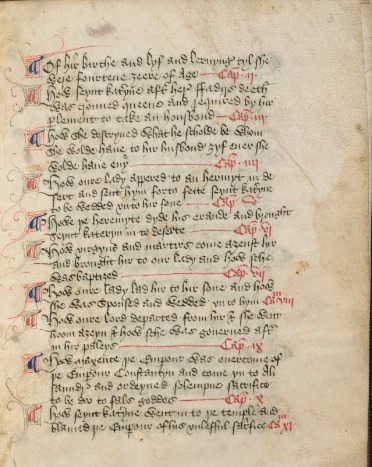 Of hir birthe and lyf and lernyng tyl she
were fourtene zeere of age Cap ii
How seynt katyne aft her fadris deeth
was crouned queene and required by hir
plement to take an housbond Cap iii
How she descryued what he scholde be whom
she wolde haue to hir husbond zyf euer she
wolde haue eny Cap iiii
How oure lady appered to an hermyt in de
sert and sent hym forto fette seynt katyne
to be wedded vnto hir sone Cap v
How þe heremyte dyde his erande and brought
seynt kateryn in to deserte Cap vi
How virgyns and martirs come azenst hir
and brought hir to our lady and how sche
was baptized Cap vii
How oure lady lad hir to hir sone and how
she was spoused and wedded vn to hym Ca viii
How oure lord departed from hir & she went
hoom azeyn & how sche was gouerned aft
in hir paleys Cap ix
How maxence þe Empour was ouercome of
þe Empour Constantyn and come yn to Ali
saundr and ordeyned solempne sacrifice
to be do to fals goddes Cap x
How seynt katyne went in to þe temple and
blamed þe Empour of his vnlefful sacrfice Ca xi